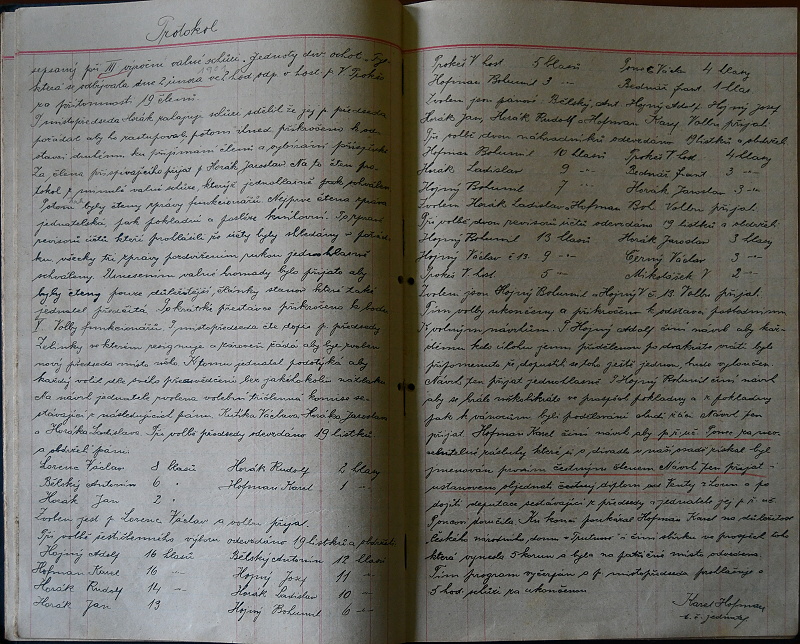 Protokol
sepsaný při III výroční valné schůzi „Jednoty div. ochot. Tyl"
která se odbývala dne 2 února ve 2 hod odp. v host. p. V. Prokeš
za přítomnosti 19 členů.
P. místopředseda Horák zahajuje schůzi sdělil že jej p. předseda
požádal aby ho zastupoval, potom ihned přikročeno k od-
stavci druhému ku přijímání členů a vybírání příspěvků
Za člena přispívajícího přijat p. Horák Jaroslav. Na to čten pro-
tokol z minulé valné schůze, kterýž jednohlasně pak schválen
Potom byly čteny zprávy funkcionářů. Nejprve čtena zpráva
jednatelská, pak pokladní a posléze
revisorů účtů, kteří prohlásili že účty byly shledány v pořád-
ku, všecky tři zprávy pozdvižením rukou jednohlasně
schváleny. Usnesením valné hromady bylo přijato aby
byly čteny pouze důležitější články stanov které také
jednatel předčítá. Po krátké přestávce přikročeno k bodu
V. Volby funkcionářů. P. místopředseda čte dopis p. předsedy
Zelinky ve kterém resignuje a zároveň žádá aby byl zvolen
nový předseda místo něho. K tomu jednatel podotýká aby
každý volil dle svého přesvědčení bez jakéhokoliv nátlaku
Na návrh jednatele zvolena volební tříčlenná komise se-
stávající z následujících pánů. Václava, Horáka Jaroslava
a Horáka Ladislava. Při volbě předsedy odevzdáno 19 lístků
a obdrželi páni:
Lorenc Václav 8 hlasů Horák Rudolf 2 hlasy
Bělský Antonín 6 " Hofman Karel 1 "
Horák Jan 2 "
Zvolen jest p. Lorenc Václav a volbu přijal.
Při volbě šestičlenného výboru odevzdáno 19 lístků a obdrželi
Hojný Adolf 16 hlasů Bělský Antonín 12 hlasů
Hofman Karel 16 " Hojný Josef 11 "
Horák Rudolf 14 " Horák Ladislav 10 "
Horák Jan 13 Hojný Bohumil 6 "
Prokeš V. host. 5 hlasů Ponec Václav 4 hlasy
Hofman Bohumil 3 " Bednář Frant 1 hlas.
Zvoleni jsou pánové: Bělský Ant. Hojný Adolf, Hojný Josef
Horák Jan, Horák Rudolf a Hofman Karel. Volbu přijali.
Při volbě dvou náhradníků odevzdáno 19 lístků a obdrželi
Hofman Bohumil 10 hlasů Prokeš V. host 4 hlasy
Horák Ladislav 9 " Bednář Frant 3 "
Hojný Bohumil 7 " Horák Jaroslav 3 "
Zvoleni Horák Ladislav a Hofman Boh. Volbu přijali.
Při volbě dvou revisorů účtů odevzdáno 19 lístků a obdrželi
Hojný Bohumil 13 hlasů Horák Jaroslav 3 hlasy
Hojný Václav č 13. 9 " Černý Václav 3 "
Prokeš V. host 5 " Mikolášek V 2 "
Zvoleni jsou Hojný Bohumil a Hojný V. č. 13. Volbu přijali.
Tím volby ukončeny a přikročeno k odstavci poslednímu
K volným návrhům. P. Hojný Adolf činí návrh aby kaž-
dému kdo úlohu jemu přidělenou po dvakráte vrátí bylo
připomenuto že dopustí-li se toho ještě jednou, bude vyloučen.
Návrh ten přijat jednohlasně. P. Hojný Bohumil činí návrh
aby se hrálo několikráte ve prospěch pokladny a z pokladny
pak k vánocům byli poděleni chudí žáci. Návrh ten
přijat. Hofman Karel činí návrh aby p. ř. uč. Ponec za neo-
cenitelné zásluhy které si o divadlo v naší osadě získal byl
jmenován prvním čestným členem. Návrh ten přijat
ustanoveno objednati čestný diplom od z Loun a po
dojití deputace sestávající z předsedy a jednatele jej p. ř. uč.
Poncovi doručila. Ku konci poukázal Hofman Karel na důležitost
českého národního domu a činí sbírku ve prospěch toho
která vynesla 5 korun a byla na patřičná místa odeslána.
Tím program vyčerpán a p. místopředseda prohlašuje o
5 hod. schůzi za ukončenou.
Karel Hofman
t. č. jednatel